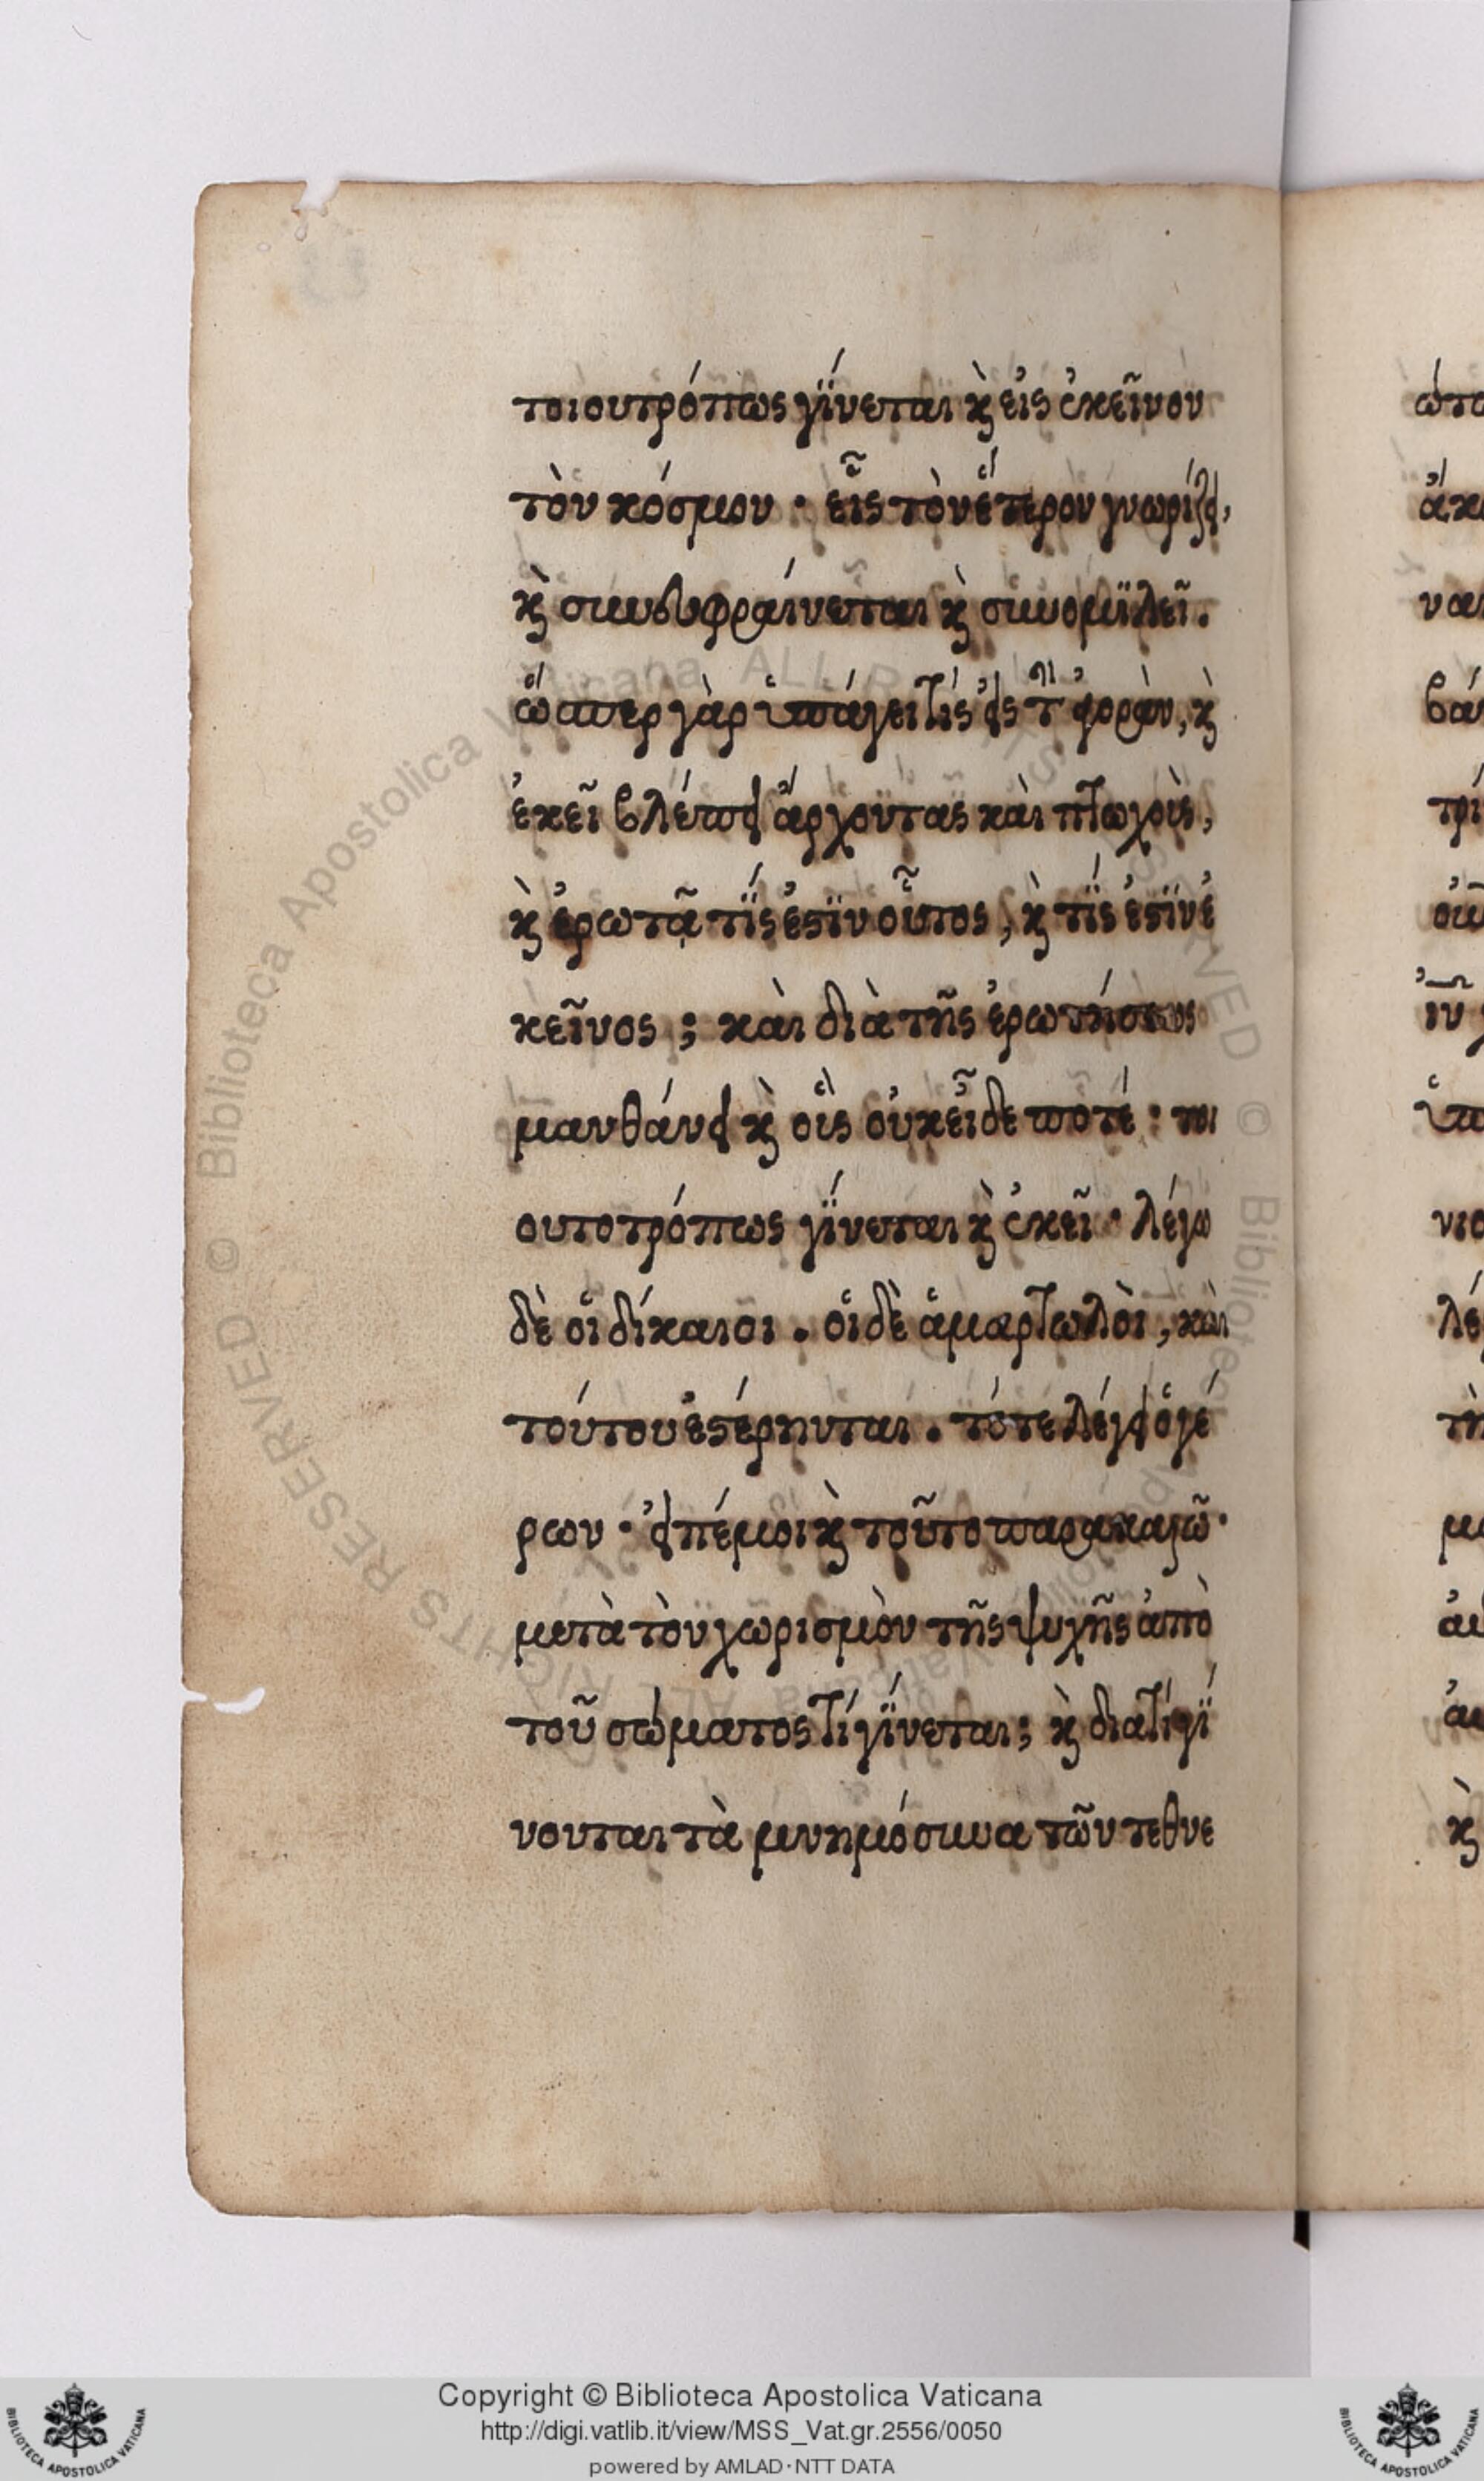 τοιουτρόπως γΐνεται κ̀ εἰς ἐκεῖνον
τὸν κόσμον · εἷς τὸν ἕτερον γνωρίζει,
κ̀ συνευφραίνεται κ̀ συνομϊλεῖ.
ὥσπερ γὰρ ὑπάγει τίς εἰς τὴν φορὰν, κ̀
ἐκεῖ βλέπει ἄρχοντας καὶ πτωχοὺς,
κ̀ ἐρωτᾷ τΐς ἐστϊν οὗτος, κ̀ τΐς ἐστϊν ἐ
κεῖνος ; καὶ διὰ τῆς ἐρωτήσεως
μανθάνει κ̀ οὓς οὐκ εἶδε ποτέ : τοι
ουτοτρόπως γΐνεται κ̀ ἐκεῖ · λέγω
δὲ οἱ δίκαιοι . οἱ δὲ ἁμαρτωλοὶ, κὰι
τούτου ἐστέρηνται . τότε λέγει ὁ γέ
ρων · εἰπέ μοι κ̀ τοῦτο παρακαλῶ ·
μετὰ τὸν χωρισμὸν τῆς ψυχῆς ἀπὸ
τοῦ σώματος τί γΐνεται ; κ̀ διατί γΐ
νονται τὰ μνημόσυνα τῶν τεθνε
ὑπ
τρί
λέ
κ̀
Copyright © Biblioteca Apostolica Vaticana
http://digi.vatlib.it/view/MSS_Vat.gr.2556/0050
powered by AMLAD·NTT DATA
BIBLIOTECA APOSTOLICA VATICANA
BIBLIOTECA APOSTOLICA VATICANA